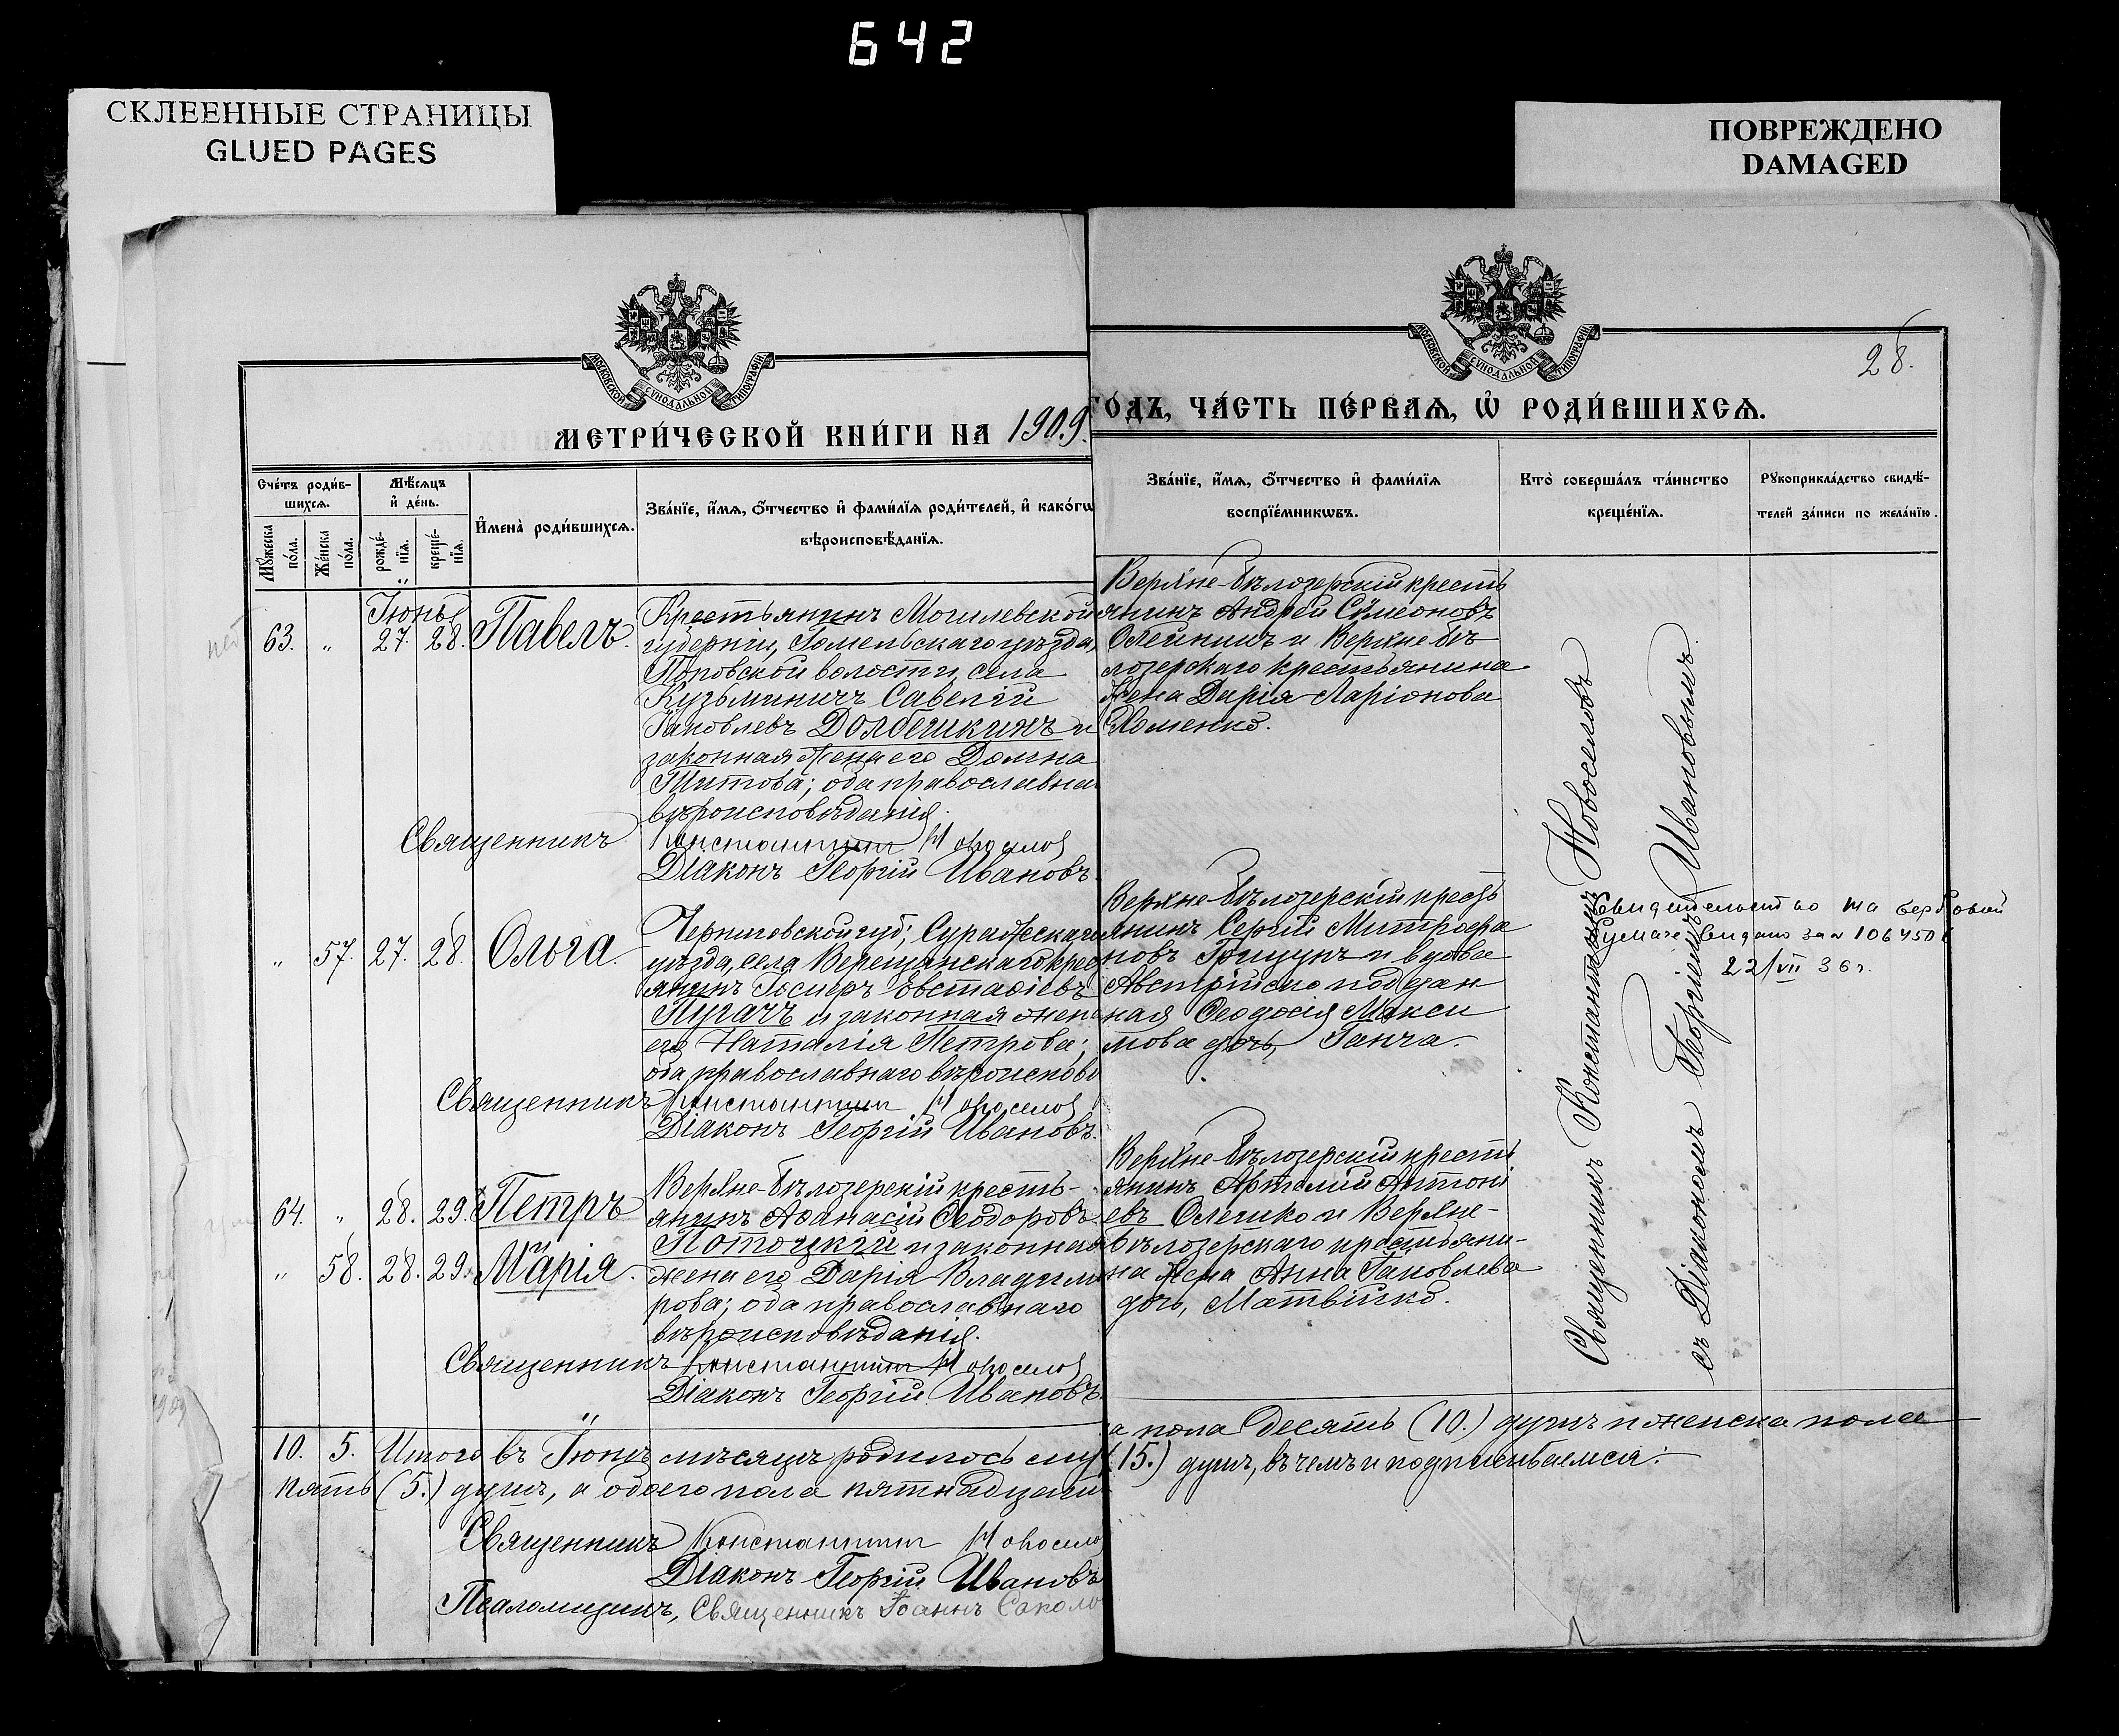 642
СКЛЕЕННЫЕ СТРАНИЦЫ
GLUED PAGES
ПОВРЕЖДЕНО
DAMAGED
МОСКОВСКОЙ СУНОДАЛЬНОЙ ТИПОГРАФІИ
МОСКОВСКОЙ СУНОДАЛЬНОЙ ТИПОГРАФІИ
28.
МЕТРИ́ЧЕСКОЙ КНИ́ГИ НА 1909.
ГО́ДЪ, ЧА́СТЬ ПЕ́РВАѦ, Ѡ҆ РОДИ́ВШИХСѦ.
Сче́тъ роди́в-
шихсѧ.
Мꙋ́жеска
по́ла.
Же́нска
по́ла.
Мѣ́сѧцъ
и҆ де́нь.
рожде́-
нїѧ.
креще́-
нїѧ.
И҆мена̀ роди́вшихсѧ.
Зва́нїе, и҆́мѧ, ѻ҆́тчество и҆ фами́лїѧ роди́телей, и҆ како́гѡ
вѣроисповѣ́данїѧ.
Зва́нїе, и҆́мѧ, ѻ҆́тчество и҆ фами́лїѧ
воспрїе́мникѡвъ.
Кто̀ соверша́лъ та́инство
креще́нїѧ.
Рꙋкоприкла́дство свидѣ́-
телей за́писи по жела́нїю.
Іюнь
63. " 27. 28. Павелъ.
Крестьянинъ Могилевской
губерніи, Гомельскаго уѣзда,
Поповской волости, села
Кузьминичъ Савелій
Іаковлевъ Долбешкинъ и
законная жена его Домна
Титова; оба православна
вѣроисповѣданія.
Священникъ Константинъ Новоселов
Діаконъ Георгій Ивановъ.
Верхне-Бѣлозерскій кресть
янинъ Андрей Сѵмеоновъ
Олейникъ и Верхне-Бѣ
лозерскаго крестьянина
жена Дарія Ларіонова
Хоменко.
" 57. 27. 28. Ольга.
Черниговской губ., Суражскаго
уѣзда, села Верещанскаго крес
янинъ Іосифъ Евстаѳіевъ
Пугачъ и законная жена
его Наталія Петрова;
оба православнаго вѣроисповѣ
Священникъ Константинъ Новоселов
Діаконъ Георгій Ивановъ.
Верхне-Бѣлозерскій кресть
янинъ Сергій Митрофа
новъ Грицунъ и вдова
Австрійско поддан
ная Ѳеодосія Макси
мова дочь, Ганча.
Свидетельство на гербовой
бумаге выдано за №
22/VII 36 г.
64. " 28. 29. Петръ
" 58. 28. 29. Марія.
Верхне-Бѣлозерскій кресть-
янинъ Аѳанасій Ѳеодоровъ
Потоцкій и законная
жена его Дарія Владими
рова; оба православнаго
вѣроисповѣданія.
Священникъ Константинъ Новоселов
Діаконъ Георгій Ивановъ.
Верхне-Бѣлозерскій кресть
янинъ Антоні
евъ Олешко и Верхне-
Бѣлозерскаго крестьяни-
на жена Анна Іаковлева
дочь, Матвійко.
Священникъ Константинъ Новоселовъ
съ Діакономъ Георгіемъ Ивановымъ.
10. 5. Итого въ Іюнѣ мѣсяцѣ родилось муж
а пола десять (10.) душъ и женска пола
пять (5.) душъ, а обоего пола пятнадцать
(15.) душъ, въ чемъ и подписываемся:
Священникъ Константинъ Новоселов
Діаконъ Георгій Ивановъ
Псаломщикъ, Священникъ Іоаннъ Соколо